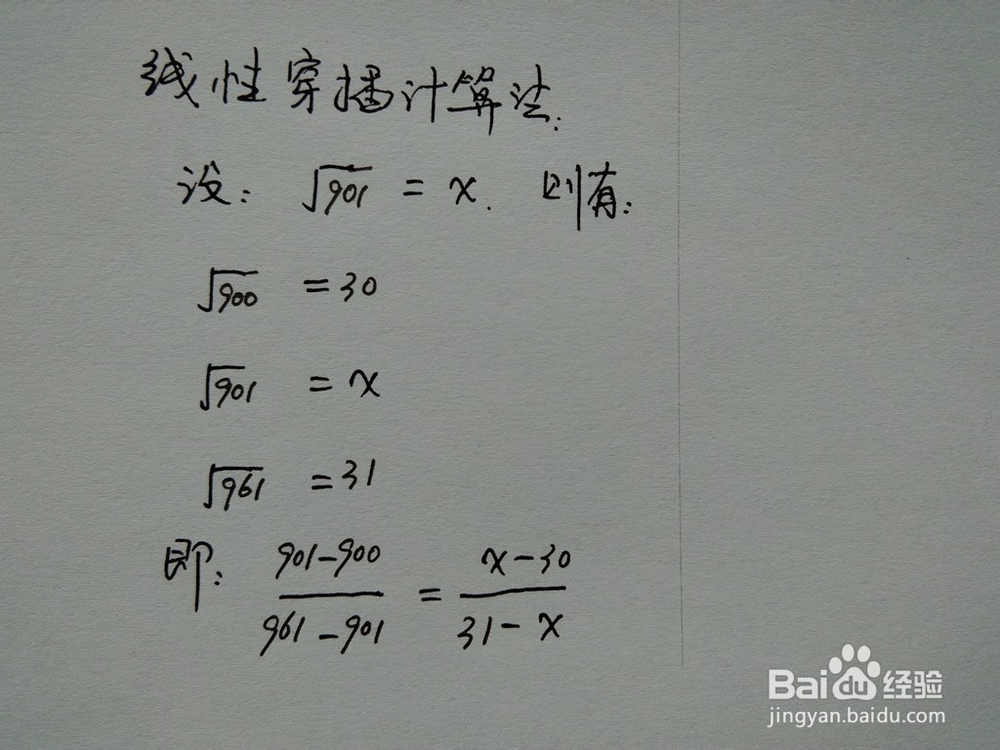 线性穿插计算法:
设: √901 = x. 则有:
√900 = 30
√901 = x
√961 = 31
即: (901-900)/(961-901) = (x-30)/(31-x)
Baidu经验
jingyan.baidu.com